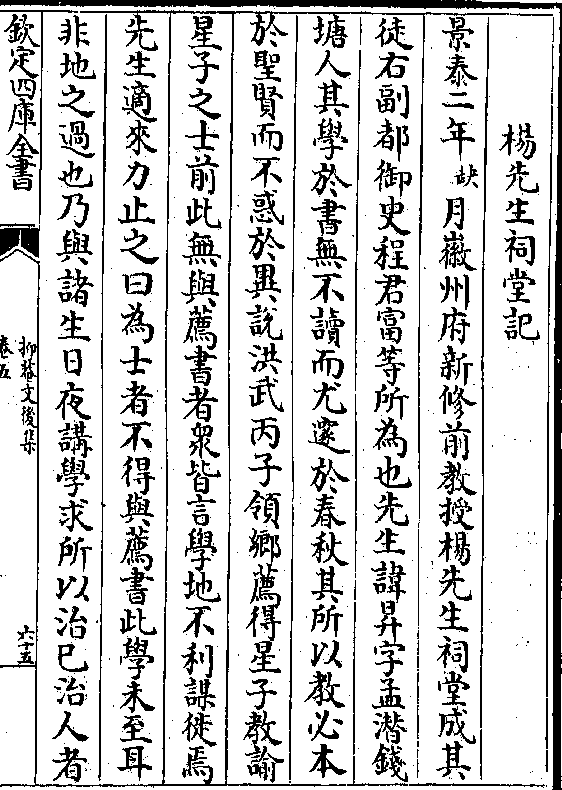 楊先生祠堂記
景泰二年缺月徽州府新修前教授楊先生祠堂成其
徒右副都御史程君富等所為也先生諱昇字孟潛錢
塘人其學於書無不讀而尤邃於春秋其所以教必本
於聖賢而不惑於異說洪武丙子領鄉薦得星子教諭
星子之士前此無與薦書者衆皆言學地不利謀徙焉
先生適來力止之曰為士者不得與薦書此學未至耳
非地之過也乃與諸生日夜講學求所以治已治人者
欽定四庫全書
抑菴文後集
卷五
六十五